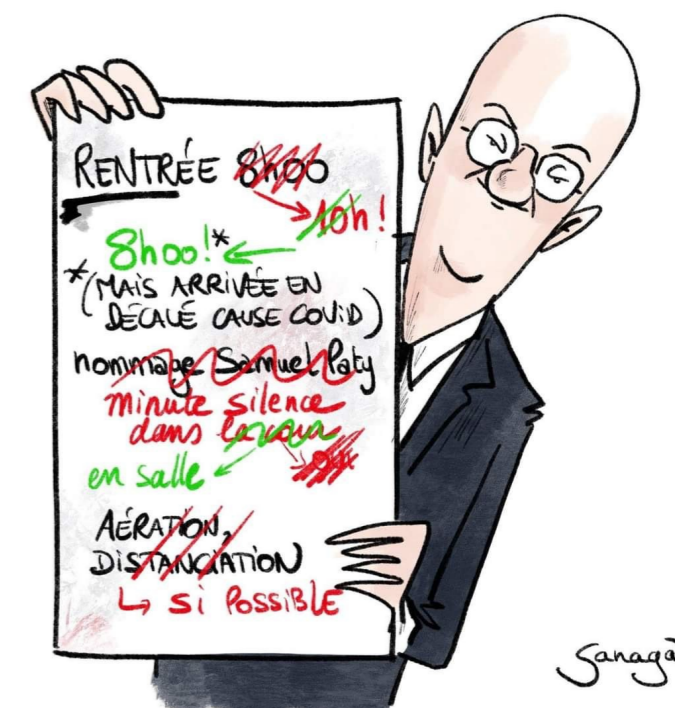 RENTRÉE 8h00
10h!
8h00!*
*(MAIS ARRIVÉE EN
DÉCALÉ CAUSE COVID)
hommage Samuel Paty
minute silence
dans la cour
en salle
AÉRATION,
DISTANCIATION
↳ SI POSSIBLE